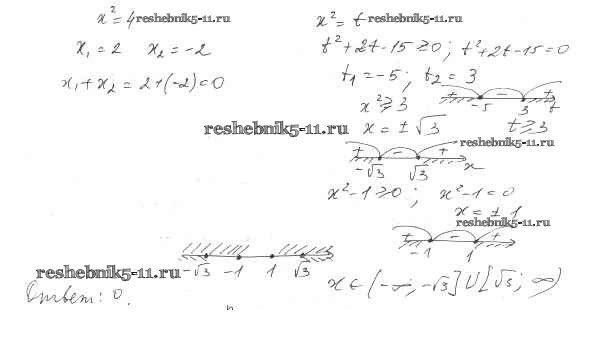 x² = 4
reshebnik5-11.ru
x₁ = 2 x₂ = -2
x₁ + x₂ = 2 + (-2) = 0
x² = t
reshebnik5-11.ru
t² + 2t - 15 ≥ 0; t² + 2t - 15 = 0
t₁ = -5; t₂ = 3
+ - +
-5 3 t
x² ≥ 3
t ≥ 3
reshebnik5-11.ru
x = ± √3
reshebnik5-11.ru
+ - +
-√3 √3 x
x² - 1 ≥ 0; x² - 1 = 0
x = ± 1
reshebnik5-11.ru
+ - +
-1 1
-√3 -1 1 √3
reshebnik5-11.ru
x ∈ (-∞; -√3] U [√3; ∞)
Ответ: 0.